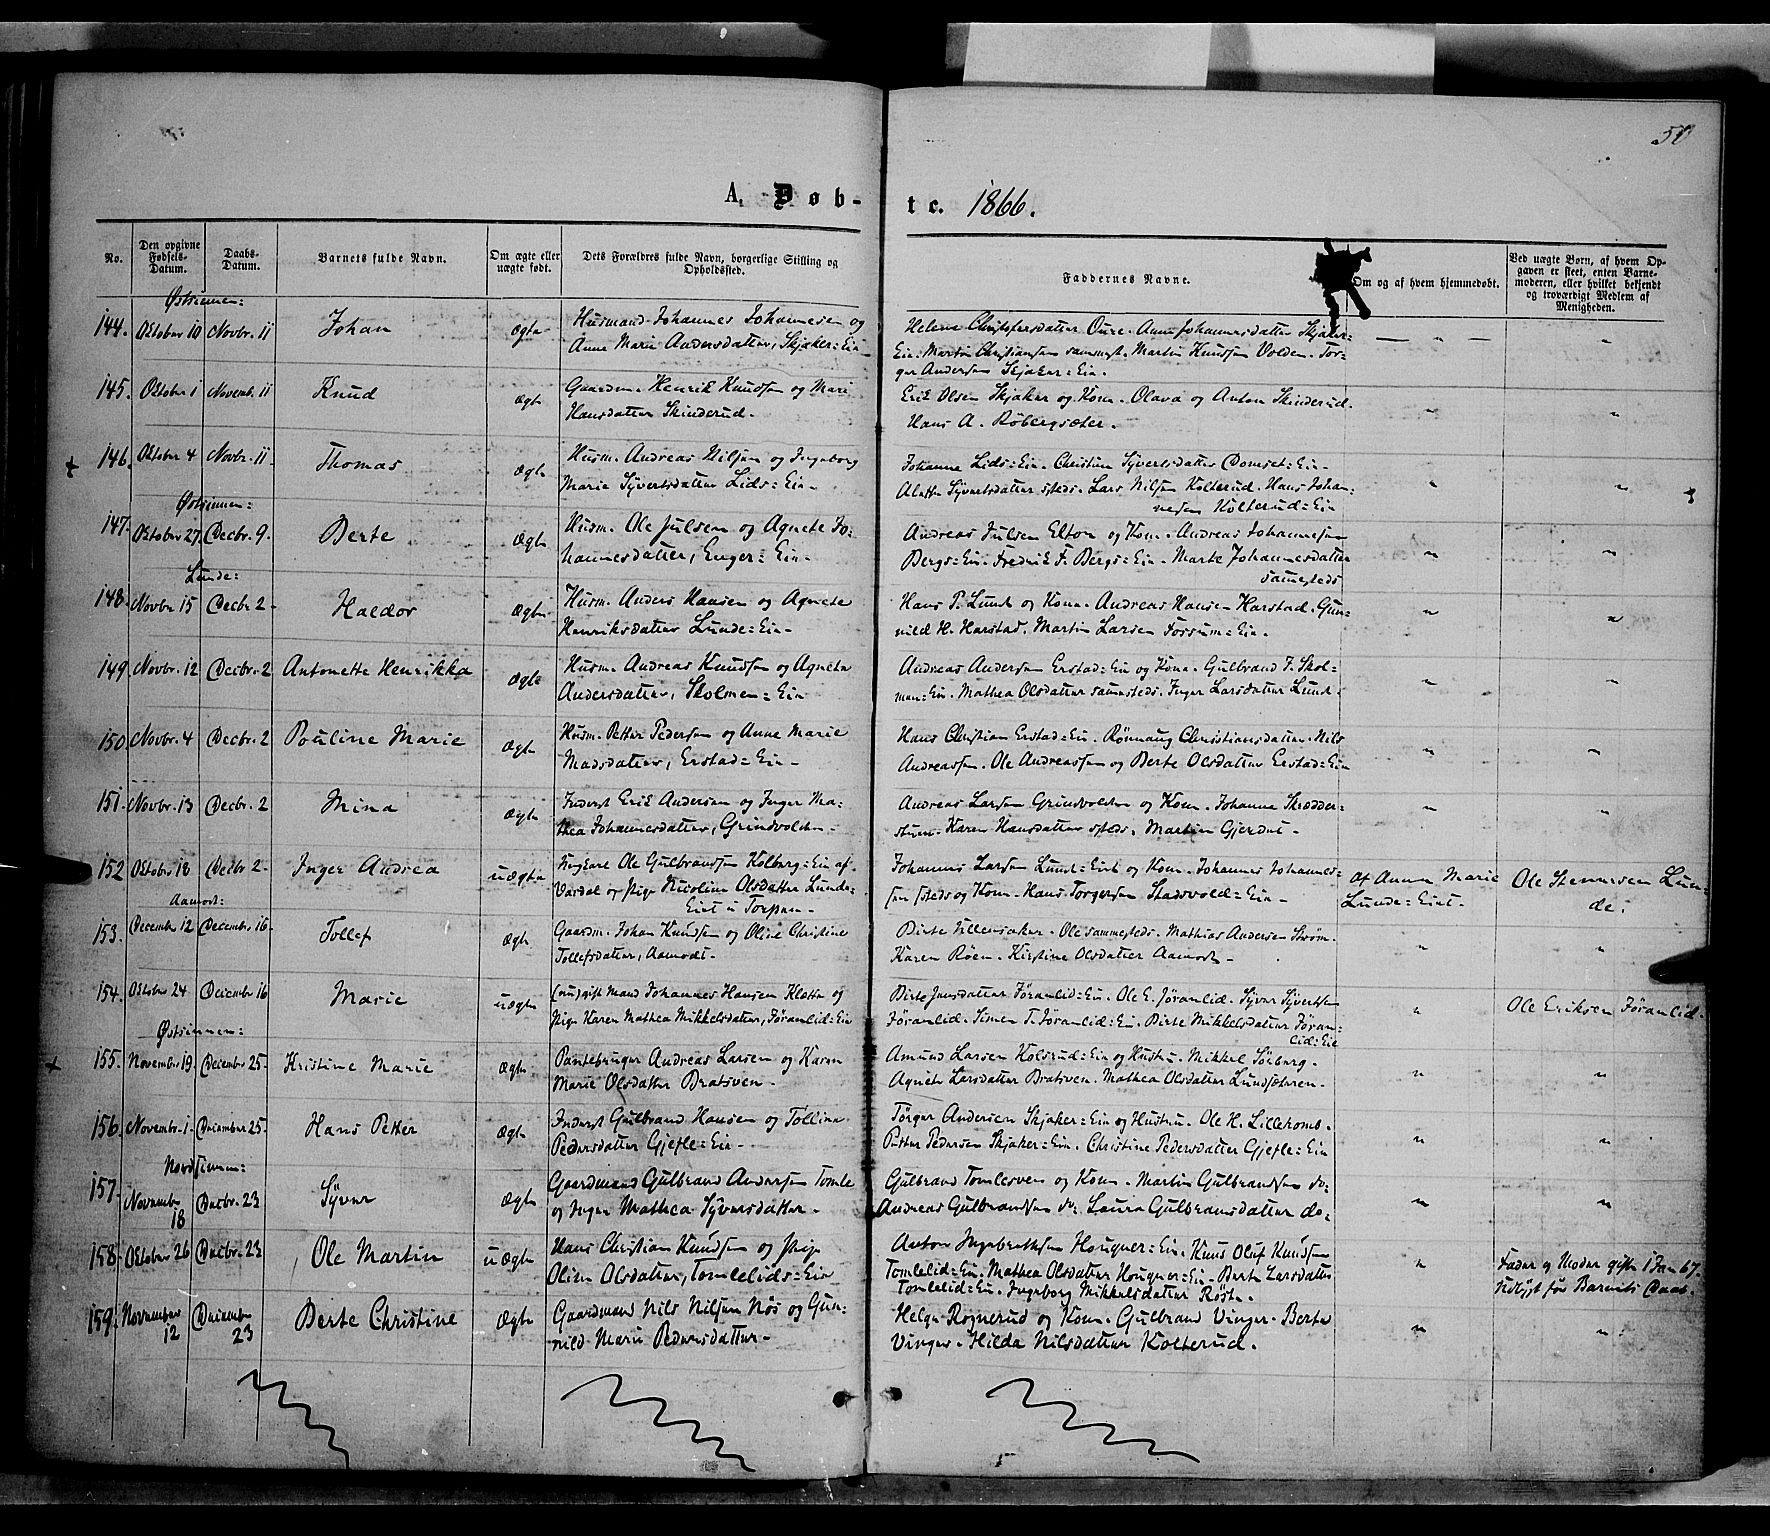 50
A. Døb-
te. 1866.
No.
Den opgivne Fødsels-Datum.
Daabs-Datum.
Barnets fulde Navn.
Om ægte eller uægte født.
Dets Forældres fulde Navn, borgerlige Stilling og Opholdssted.
Faddernes Navne.
Om og af hvem hjemmedøbt.
Ved uægte Børn, af hvem Op-
gaven er skeet, enten Barne-
moderen, eller hvilket bekjendt
og troværdigt Medlem af
Menigheden.
Østsinnen:
144. Oktober 10 Novbr. 11 Johan ægte Husmand Johannes Johannesen og
Anne Marie Andersdatter, Skjaker=Ein
Helene Christofersdatter Oure. Anne Johannesdatter Skjaker-
Ein. Martin Christiansen sammest. Martin Knudsen Volden. Tor-
ger Andersen Skjaker=Ein.
— " — "
145. Oktober 1 Novemb. 11 Knud ægte Gaardm. Henrik Knudsen og Mari
Hansdatter Skinderud.
Erik Olsen Skjaker og Kone. Olava og Anton Skinderud.
Hans A. Røbergsæter.
" "
+ 146. Oktober 4 Novbr. 11. Thomas ægte Husm. Andreas Nilsen og Ingeborg
Marie Syvertsdatter Lids=Ein-
Johanne Lids=Ein. Christine Syvertsdatter Domset=Ein-
Alette Syvertsdatter ssteds. Lars Nilsen Kolterud. Hans Johan-
nesen Kolterud=Ein
" "
Østsinnen:
147. Oktober 27. Decbr. 9. Berte ægte Husm. Ole Julsen og Agnete Jo-
hannesdatter, Enger=Ein-
Andreas Julsen Elton og Kone. Andreas Johannesen
Bergs=Ein. Fredrik F. Bergs=Ein. Marte Johannesdatter
sammesteds
" "
Lunde:
148. Novbr 15 Decbr 2- Haldor ægte Husm. Anders Hansen og Agnete
Henriksdatter Lunde=Ein-
Hans P. Lund og Kone. Andreas Hansen Harstad. Gun-
nild H. Harstad. Martin Larsen Fossum=Ein.
" "
149. Novbr. 12 Decbr. 2 Antonette Henrikka ægte Husm. Andreas Knudsen og Agnete
Andersdatter, Skolmen=Ein
Andreas Andersen Erstad=Ein og Kone. Gulbrand F. Skol-
men=Ein. Mathea Olsdatter sammesteds. Inger Larsdatter Lund.
" "
150. Novbr. 4 Decbr. 2 Pouline Marie ægte Husm. Petter Pedersen og Anne Marie
Madsdatter, Erstad=Ein-
Hans Christian Erstad=Ein. Rönnaug Christiansdatter. Nils
Andreassen. Ole Andreassen og Berte Olsdatter Erstad=Ein
" "
151. Novbr. 13 Decbr. 2 Mina ægte Inderst Erik Andersen og Inger Ma-
thea Johannesdatter, Grindvolden-
Andreas Larsen Grindvolden og Kone. Johanne Skrædder-
stuen. Karen Hansdatter ssteds. Martin Gjerdet-
" "
152 Oktober 18 Decbr 2- Inger Andrea uægte Ungkarl Ole Gulbrandsen Kolberg=Ein af
Vardal og Pige Nicoline Olsdatter Lunde-
Eiet i Torpen-
Johannes Larsen Lund=Eiet og Kone. Johannes Johannes-
sen ssteds og Kone. Hans Torgersen Stadsvold=Ein-
Af Anne Marie
Lunde=Eiet-
Ole Stennersen Lun-
de.
Aamodt:
153. December 12 December 16- Tollef ægte Gaardm. Johan Knudsen og Oline Christine
Tollefsdatter, Aamodt-
Birte Lillensaker. Ole sammesteds. Mathias Andersen Strøm.
Karen Röen. Kirstine Olsdatter Aamodt-
" "
154. Oktober 24 December 16 Marie uægte (nu) gift Mand Johannes Hansen Klette og
Pige Karen Mathea Mikkelsdatter, Föranlid=Ein
Birte Jensdatter Föranlid=Ein. Ole E. Föranlid. Syver Syvertsen
Föranlid. Simen T. Föranlid=Ein. Birte Mikkelsdatter Föran-
lid=Ein
" Ole Eriksen Föranlid.
Østsinnen:
+ 155. November 19. December 25. Kristine Marie ægte Pantebruger Andreas Larsen og Karen
Marie Olsdatter Bratsven-
Amund Larsen Kolsrud=Ein og Hustru. Mikkel Sörberg.
Agnete Larsdatter Bratsven. Mathea Olsdatter Lundsæteren.
" "
156. Novembr. 1. December 25. Hans Petter ægte Inderst Gulbrand Hansen og Tolline
Pedersdatter Gjefle=Ein-
Törger Andersen Skjaker=Ein og Hustru. Ole H. Lillehomb.
Petter Pedersen Skjaker=Ein. Christine Pedersdatter Gjefle=Ein
" "
Nordsinnen:
157. November 18 Decbr. 23 Syver ægte Gaardmand Gulbrand Andersen Tomle
og Inger Mathea Syversdatter.
Gulbrand Tomlesven og Kone. Martin Gulbrandsen do.
Andreas Gulbrandsen do. Laura Gulbransdatter do-
" "
158. Oktober 26 Decbr. 23 Ole Martin uægte Hans Christian Knudsen og Pige
Oline Olsdatter, Tomlelids=Ein
Anton Ingebrektsen Hougner=Ein. Knud Oluf Knudsen
Tomlelid=Ein. Mathea Olsdatter Hougner=Ein. Berte Larsdatter
Tomlelid=Ein. Ingeborg Mikkelsdatter Röste.
" Fader og Moder gifte 1 Jan 67.
før Barnets Daab.
159. November 12 December 23 Berte Christine ægte Gaardmand Nils Nilsen Nös og Gun-
nild Marie Pedersdatter-
Helge Rognerud og Kone. Gulbrand Vinger. Berte
Vinger. Hilda Nilsdatter Kolterud.
" "